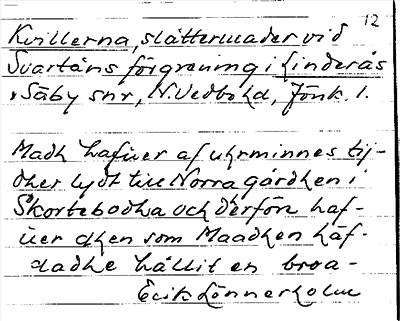 12
Kvillerna, slåttermader vid
Svartåns förgrening i Linderås
o Säby snr, N. Vedbo hd, Jönk. l.
Madh hafuer af uhrminnes tij-
dher lydt till Norra gårdhen i
Skortebodha och därföre haf-
uer dhen som Maadhen häf-
dadhe hållit en broa-
Erik Lönnerholm